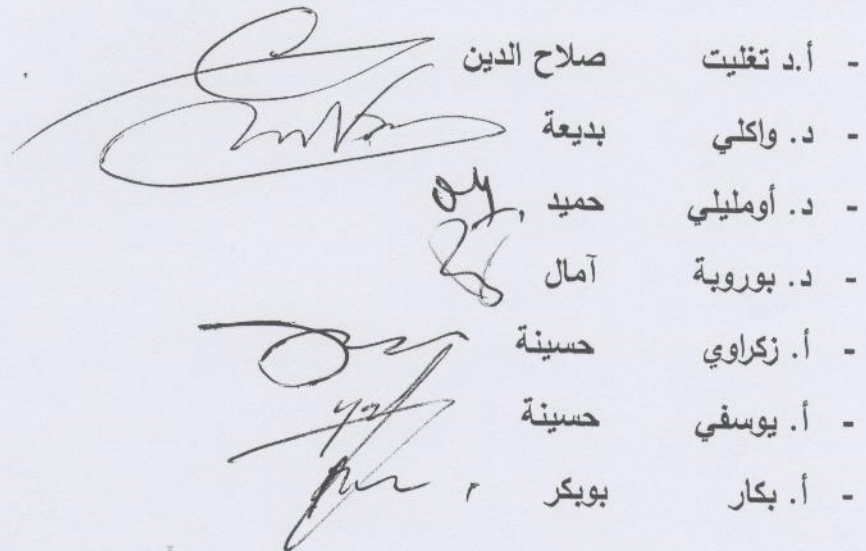 - أ.د تغليت صلاح الدين
- د. واكلي بديعة
- د. أومليلي حميد
- د. بوروبة آمال
- أ. زكراوي حسينة
- أ. يوسفي حسينة
- أ. بكار بوبكر